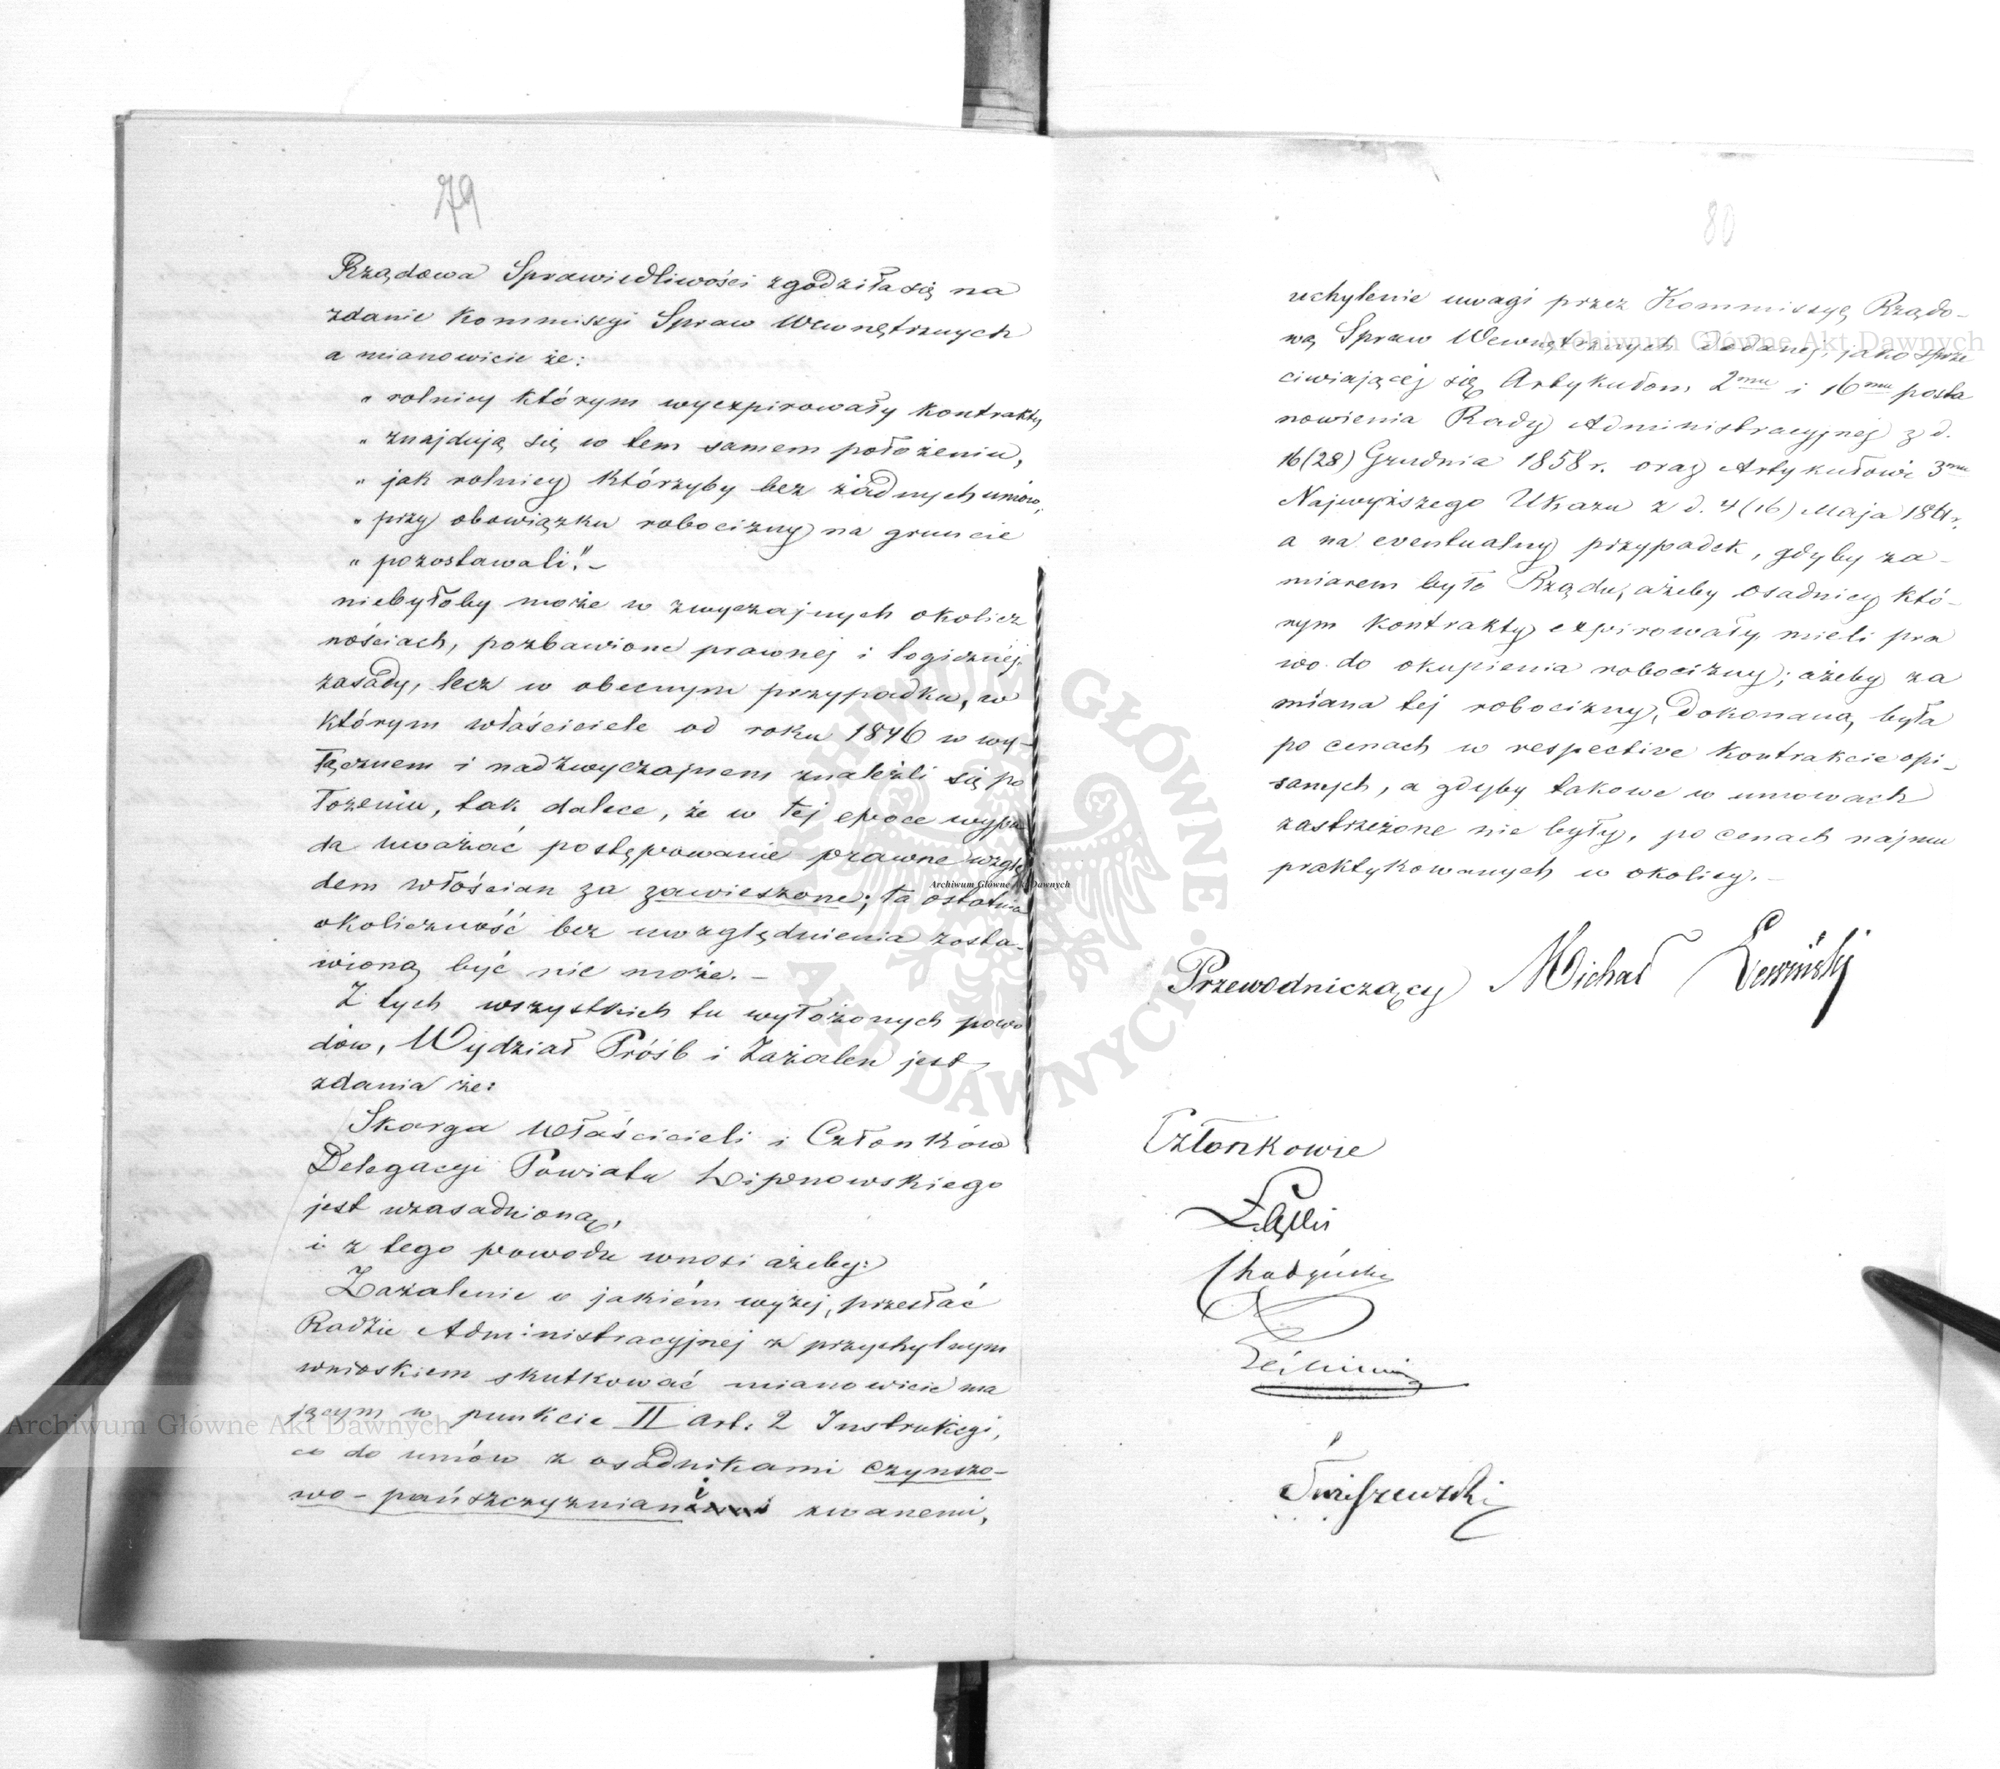 79
Rządowa Sprawiedliwości zgodziła się na
zdanie Kommissyi Spraw Wewnętrznych
a mianowicie że:
„ rolnicy którym wyexpirowały kontrakty
„ znajdują się w tem samem położeniu,
„ jak rolnicy którzyby bez żadnych umów,
„ przy obowiązku robocizny na gruncie
„ pozostawali." –
niebyłoby może w zwyczajnych okolicz
nościach, pozbawione prawnej i logicznéj
zasady, lecz w obecnym przypadku, w
którym właściciele od roku 1846 w wy-
łącznem i nadzwyczajnem znaleźli się po
łożeniu, tak dalece, że w tej epoce wypa
da uważać postępowanie prawne wzglę
dem włościan za zawieszone; ta ostatnia
okoliczność bez uwzględnienia zosta-
wioną być nie może. –
Z tych wszystkich tu wyłożonych powo
dów, Wydział Próśb i Zażaleń jest
zdania że:
Skarga Właścicieli i Członków
Delegacyi Powiatu Lipnowskiego
jest uzasadnioną,
i z tego powodu wnosi ażeby:
Zażalenie o jakiém wyżej, przesłać
Radzie Administracyjnej z przychylnym
wnioskiem skutkować mianowicie ma
jącym w punkcie II art: 2 Instrukcyi,
co do umów z osadnikami czynszo-
wo-pańszczyznian zwanemi,
80
uchylenie uwagi przez Kommissyę Rządo-
wą Spraw Wewnętrznych dodanej, jako sprze
ciwiającéj się Artykułom 2mu i 16mu posta
nowienia Rady Administracyjnej z d.
16(28) Grudnia 1858 r. oraz Artykułowi 3mu
Najwyższego Ukazu z d. 4(16) Maja 1861 r.
a na eventualny przypadek, gdyby za-
miarem było Rządu, ażeby osadnicy któ-
rym kontrakty expirowały mieli pra
wo do okupienia robocizny; ażeby za
miana tej robocizny, dokonaną była
po cenach w respective kontrakcie opi-
sanych, a gdyby takowe w umowach
zastrzeżone nie były, po cenach najmu
praktykowanych w okolicy. –
Przewodniczący Michał Lewiński
Członkowie
Archiwum Główne Akt Dawnych
Archiwum Główne Akt Dawnych
Archiwum Główne Akt Dawnych
ARCHIWUM GŁÓWNE AKT DAWNYCH